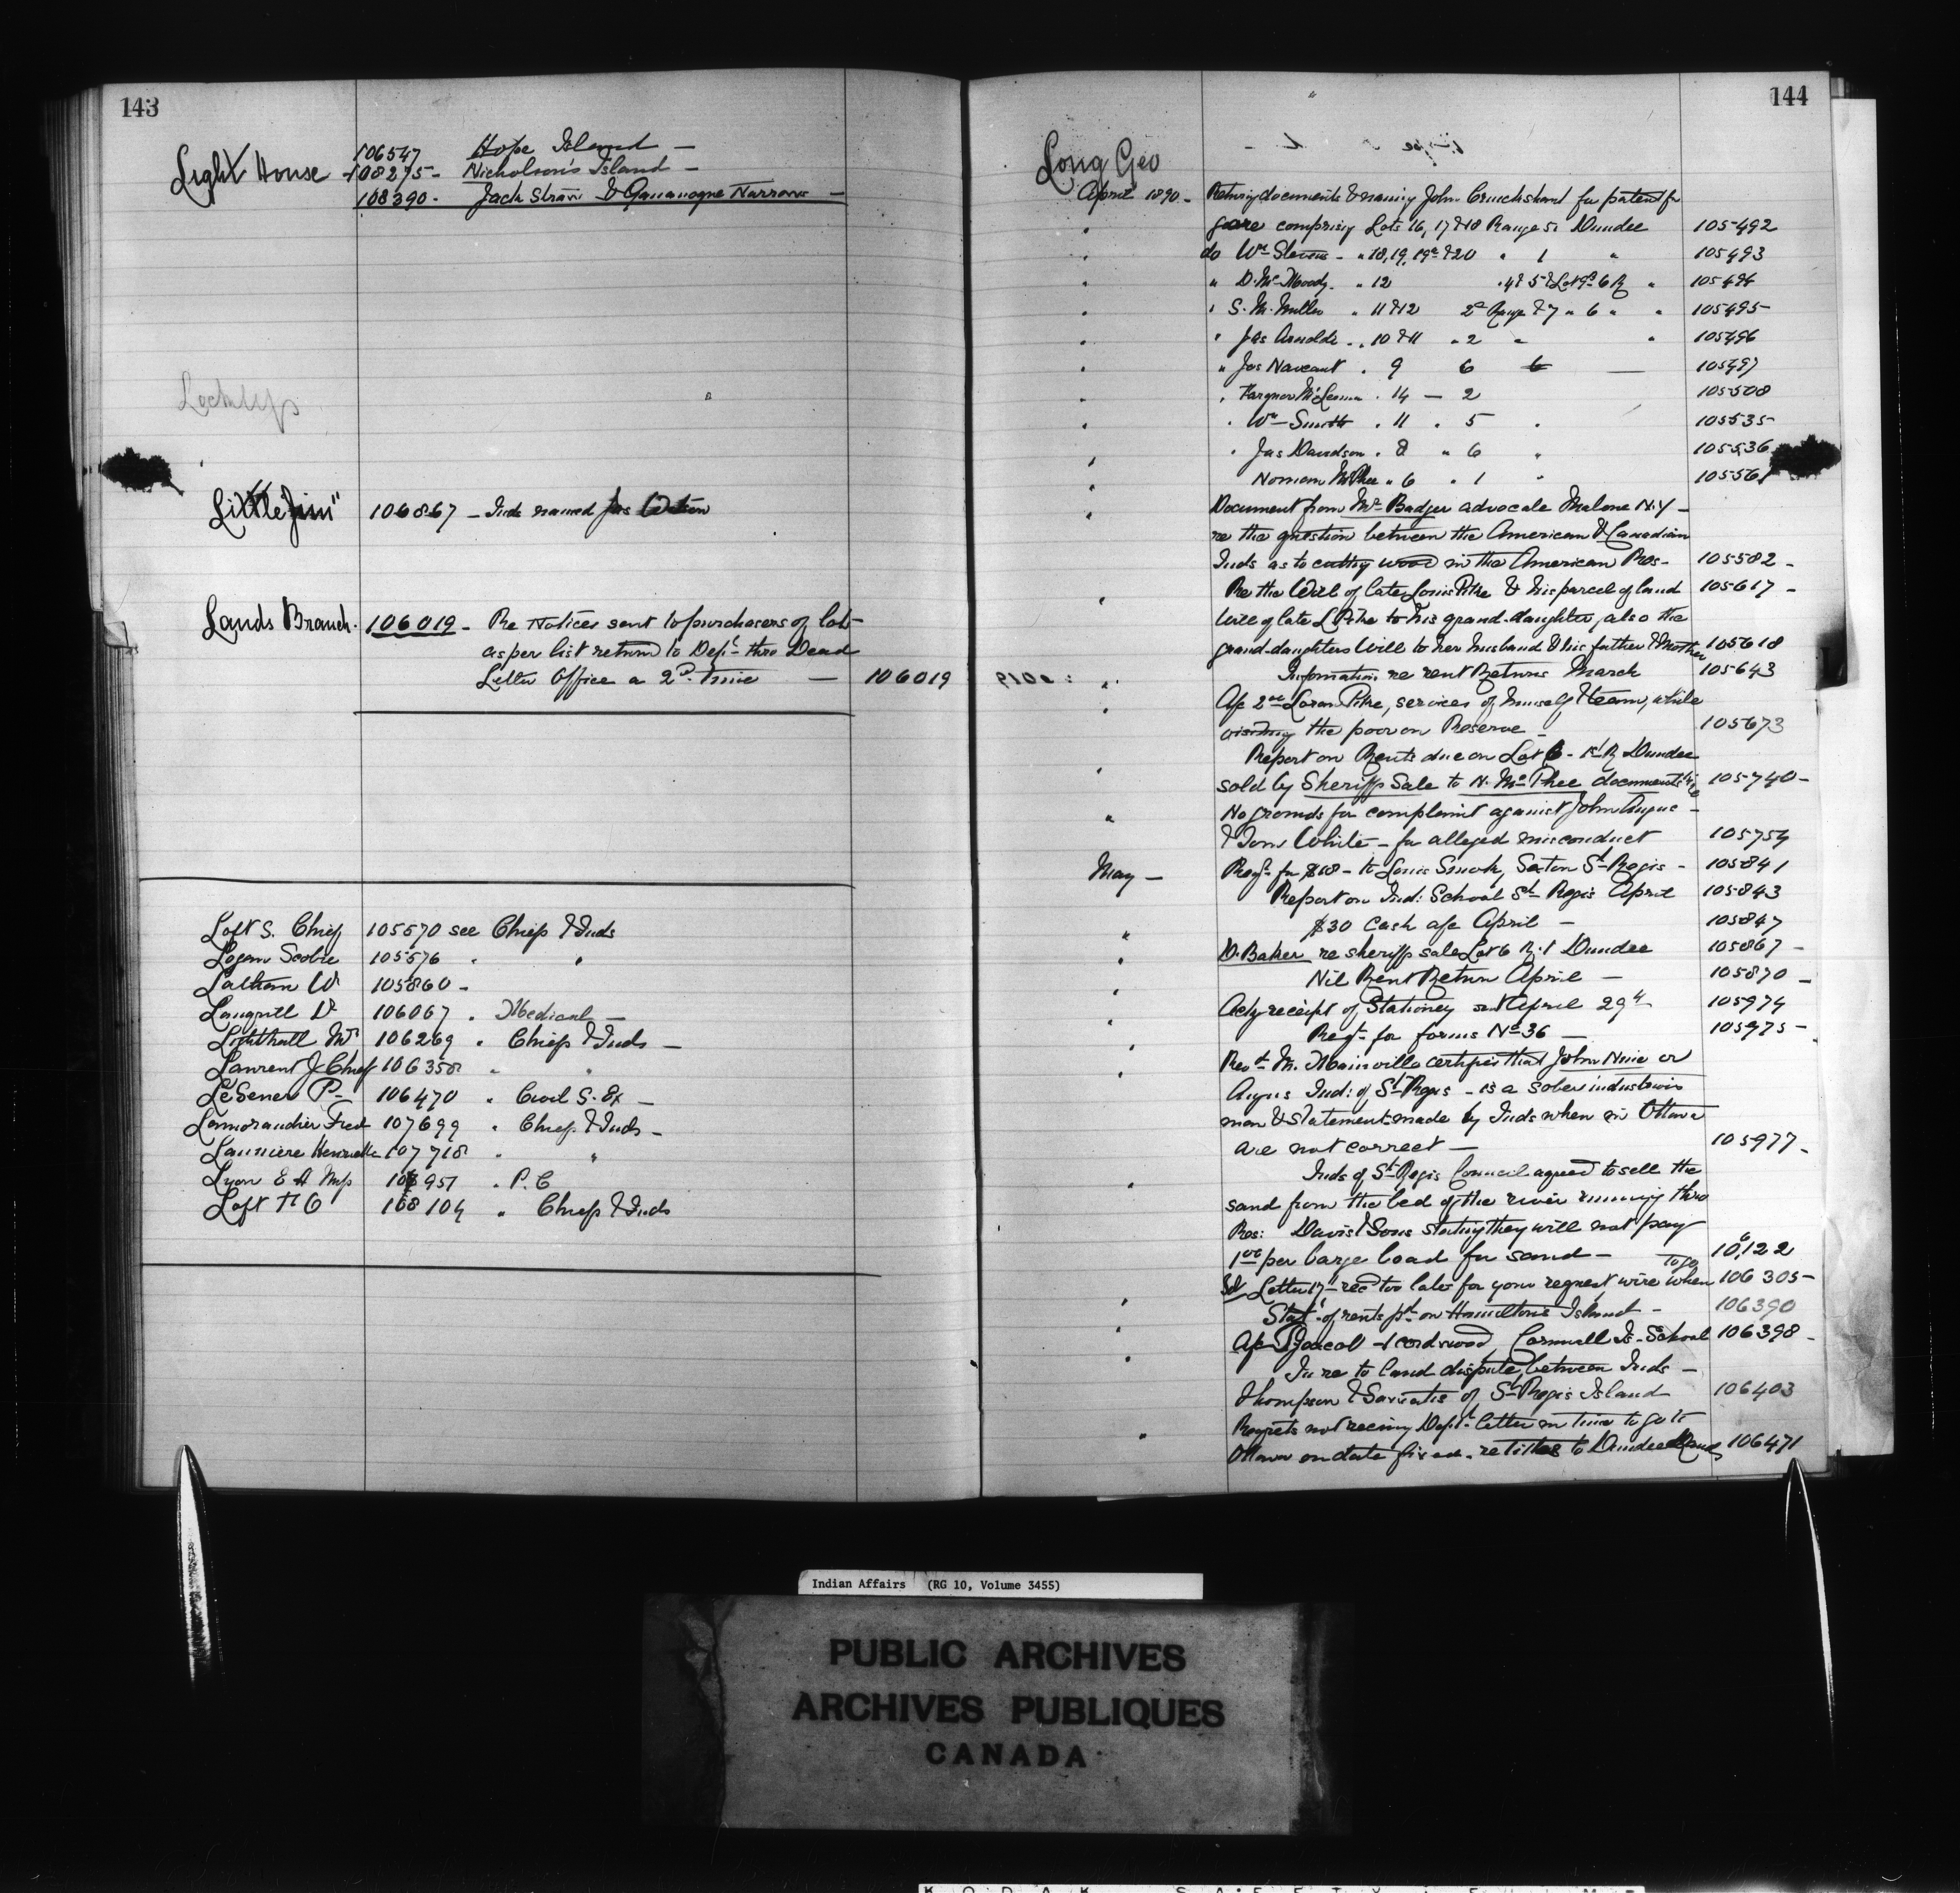 143
Light House - 106547 Hope Island -
108275 - Nicholson's Island -
108390 - Jack Straw & Gananoque Narrows -
Little Jim" 106867 - Inds named Jas
Lands Branch. 106019 - Re Notices sent to purchasers of lots
as per list return'd to Dept. thro Dead
Letter Office a 2d. time - 106019
Loft S. Chief 105570 see Chiefs & Inds
Logan Scobie 105576 " "
Latham W 105860 -
Langrill Dr 106067 " Medical -
Lighthall Mr 106269 " Chiefs & Inds -
Laurent J. Chief 106358 " "
LeSener P - 106470 " Civil S. Ex -
Lamorandier Fred 107699 " Chiefs & Inds -
Launiere Henriette 107718 " "
Lyon E A Mfs 107951 " P. C
Loft T C 108104 " Chiefs & Inds
144
Long Geo
April 1890 - Returning documents & naming John Cruickshank for patent for
gore comprising Lots 16, 17 & 18 Range 5 Dundee 105492
" do Wm Stevens - " 18, 19, 19a & 20 " 1 " 105493
" " D. Mc Moody. " 12 " 4 & 5 & Lot 9 6 R " 105494
" " S. M. Miller " 11 & 12 2d Range & 7 " 6 " " 105495
" " Jas Arnolds - " 10 & 11 " 2 " " 105496
" " Jos Naveaut " 9 6 105497
" " Farquer McLennan " 14 - 2 105508
" Wm Smith " 11 " 5 " 105535
" " Jas Davidson " 8 " 6 " 105536
" Norman McPhee " 6 " 1 " 105561
" Document from Mr Badger advocate Malone N.Y -
re the question between the American & Canadian
Inds as to cutting wood in the American Res - 105582 -
" Re the Will of late Louis Pike & his parcel of land 105617 -
Will of late L Pike to his grand-daughter, also the
grand-daughters Will to her husband & his father & Mother 105618
" Information re rent Returns March 105643
" A/c 2.00 Loran Pike, services of himself & team, while
visiting the poor on Reserve - 105673
" Report on Rents due on Lot 6 - 1st R Dundee
sold by Sheriffs Sale to N. McPhee documents 105740 -
" No grounds for complaint against John Angus -
& Tom White - for alleged misconduct 105754
May - Reqn for $68 - to Louis Smoke, Sexton St Regis - 105841
Report on Ind: School St Regis April 105843
" $30 Cash a/c April - 105847
" D. Baker re sheriffs sale Lot 6 R. 1 Dundee 105867 -
" Nil Rent Return April - 105870 -
" Ackg receipt of Stationery sent April 29th 105974
" Reqn for forms No 36 - 105975 -
" Revd M. Mainville certifies that John Nine or
Angus Ind: of St Regis - is a sober industrious
man & statements made by Inds when in Ottawa
are not correct - 105977 -
" Inds of St Regis Council agreed to sell the
sand from the bed of the river running thro
Res: Davis & Sons stating they will not pay
1.00 per barge load for sand - 106122
Letter 17th recd too late for your request wire when to go 106305 -
" Statt of rents pd on Hamilton's Island - 106390
" A/c Jacob 4 cordswood, Cornwall Is - School 106398 -
" In re to land dispute, between Inds -
Thompson & of St Regis Island 106403
" Regrets not receivg Dept. letter in time to go to
Ottawa on date fixed - re titles to Dundee Lands 106471
Indian Affairs (RG 10, Volume 3455)
PUBLIC ARCHIVES
ARCHIVES PUBLIQUES
CANADA